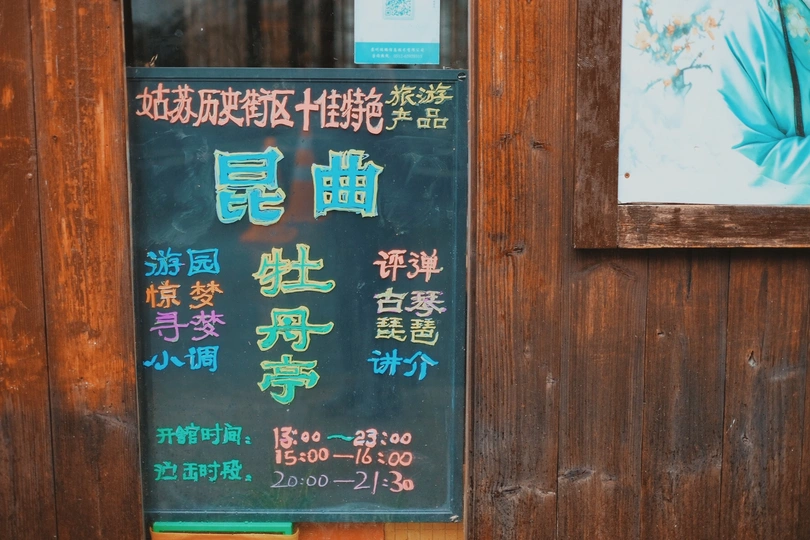 姑苏历史街区十佳特色旅游产品
昆曲
牡丹亭
游园
惊梦
寻梦
小调
评弹
古琴
琵琶
讲介
开馆时间：
—23:00
15:00—16:00
时段：
20:00—21:30